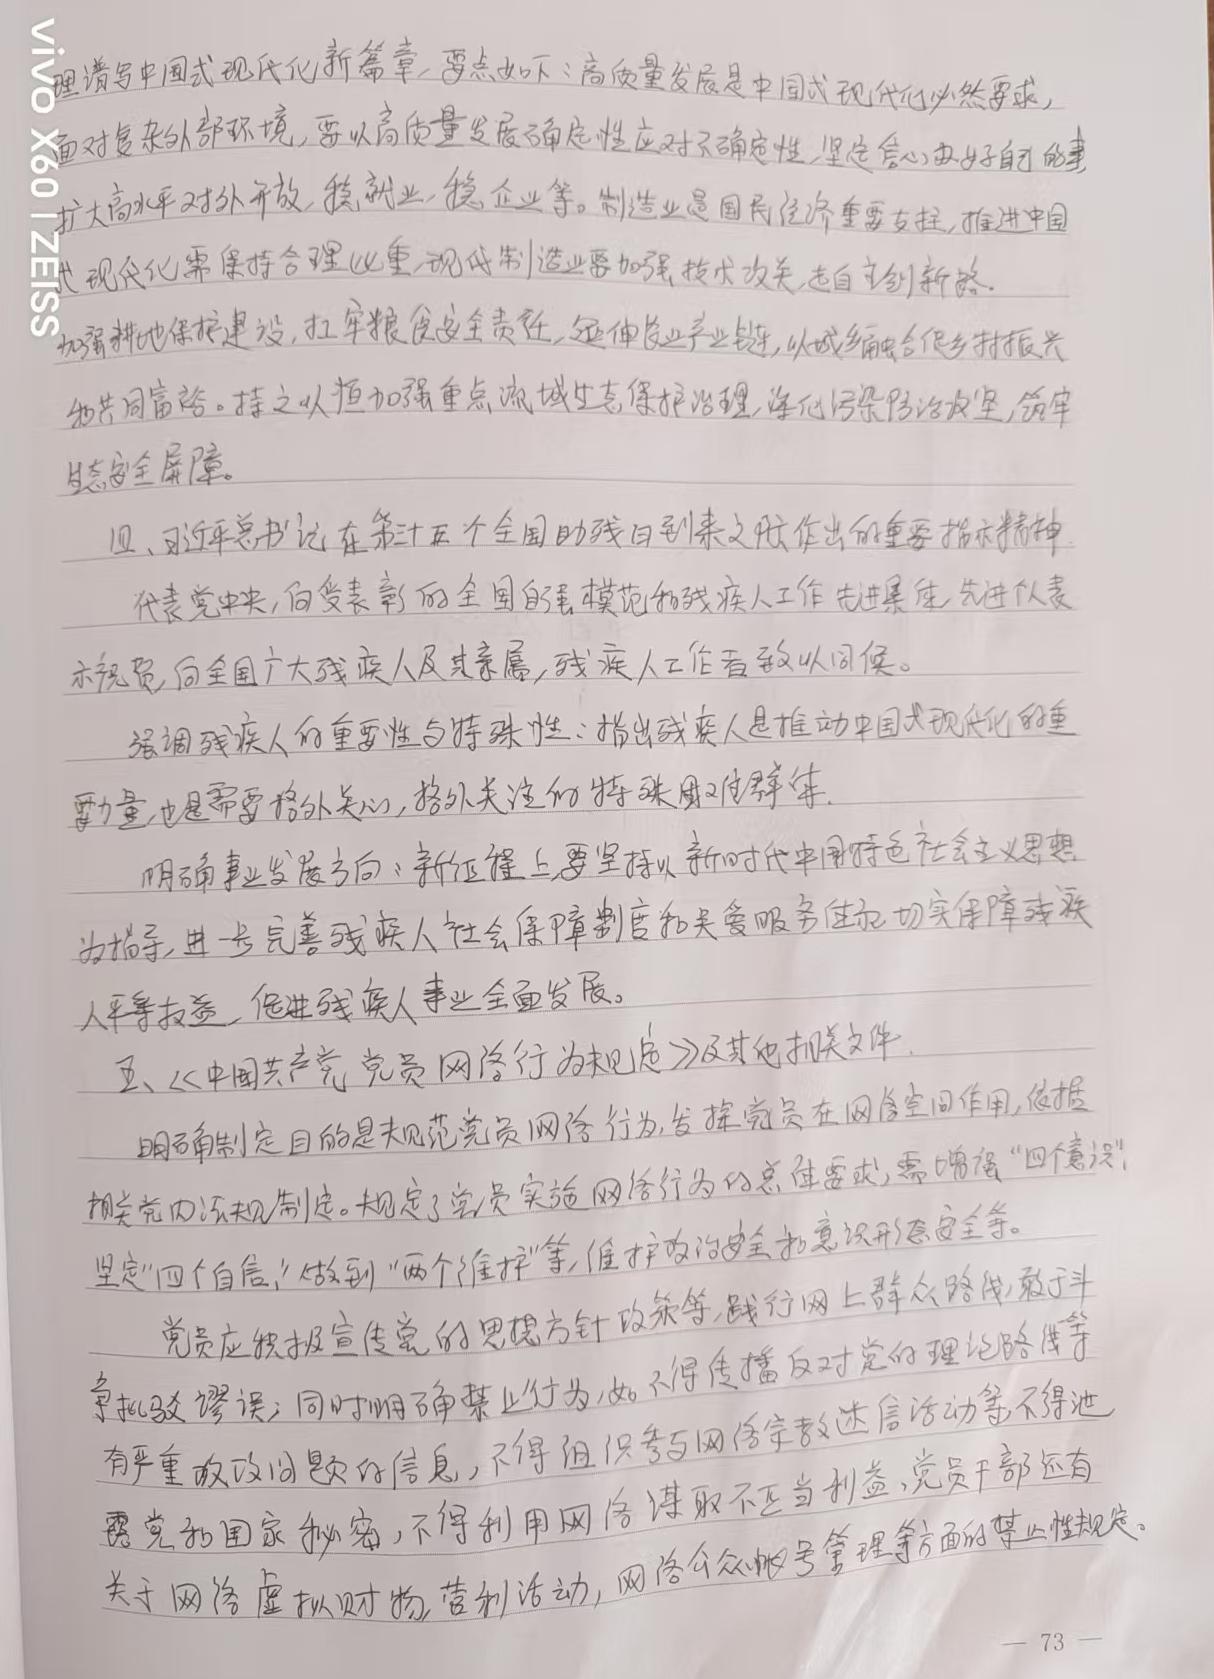 vivo X60 | ZEISS
理谱写中国式现代化新篇章,要点如下:高质量发展是中国式现代化必然要求,
面对复杂外部环境,要以高质量发展确定性应对不确定性,坚定信心办好自己的事
扩大高水平对外开放,稳就业,稳企业等。制造业是国民经济重要支柱,推进中国
式现代化需保持合理比重,现代制造业要加强技术攻关,走自主创新路.
加强耕地保护建设,扛牢粮食安全责任,延伸农业产业链,以城乡融合促乡村振兴
和共同富裕。持之以恒加强重点流域生态保护治理,深化污染防治攻坚,筑牢
生态安全屏障。
四、习近平总书记在第三十五个全国助残日到来之际作出的重要指示精神.
代表党中央,向受表彰的全国自强模范和残疾人工作先进集体,先进个人表
示祝贺,向全国广大残疾人及其亲属,残疾人工作者致以问候。
强调残疾人的重要性与特殊性:指出残疾人是推动中国式现代化的重
要力量,也是需要格外关心,格外关注的特殊困难群体.
明确事业发展方向:新征程上,要坚持以新时代中国特色社会主义思想
为指导,进一步完善残疾人社会保障制度和关爱服务体系,切实保障残疾
人平等权益,促进残疾人事业全面发展。
五、《中国共产党党员网络行为规定》及其他相关文件.
明确制定目的是规范党员网络行为,发挥党员在网络空间作用,依据
相关党内法规制定。规定了党员实施网络行为的总体要求,需增强“四个意识”,
坚定“四个自信”,做到“两个维护”等,维护政治安全和意识形态安全等。
党员应积极宣传党的思想方针政策等,践行网上群众路线,敢于斗
争批驳谬误;同时明确禁止行为,如不得传播反对党的理论路线等
有严重政治问题的信息,不得组织参与网络宗教迷信活动等,不得泄
露党和国家秘密,不得利用网络谋取不正当利益,党员干部还有
关于网络虚拟财物,营利活动,网络公众帐号管理等方面的禁止性规定。
— 73 —